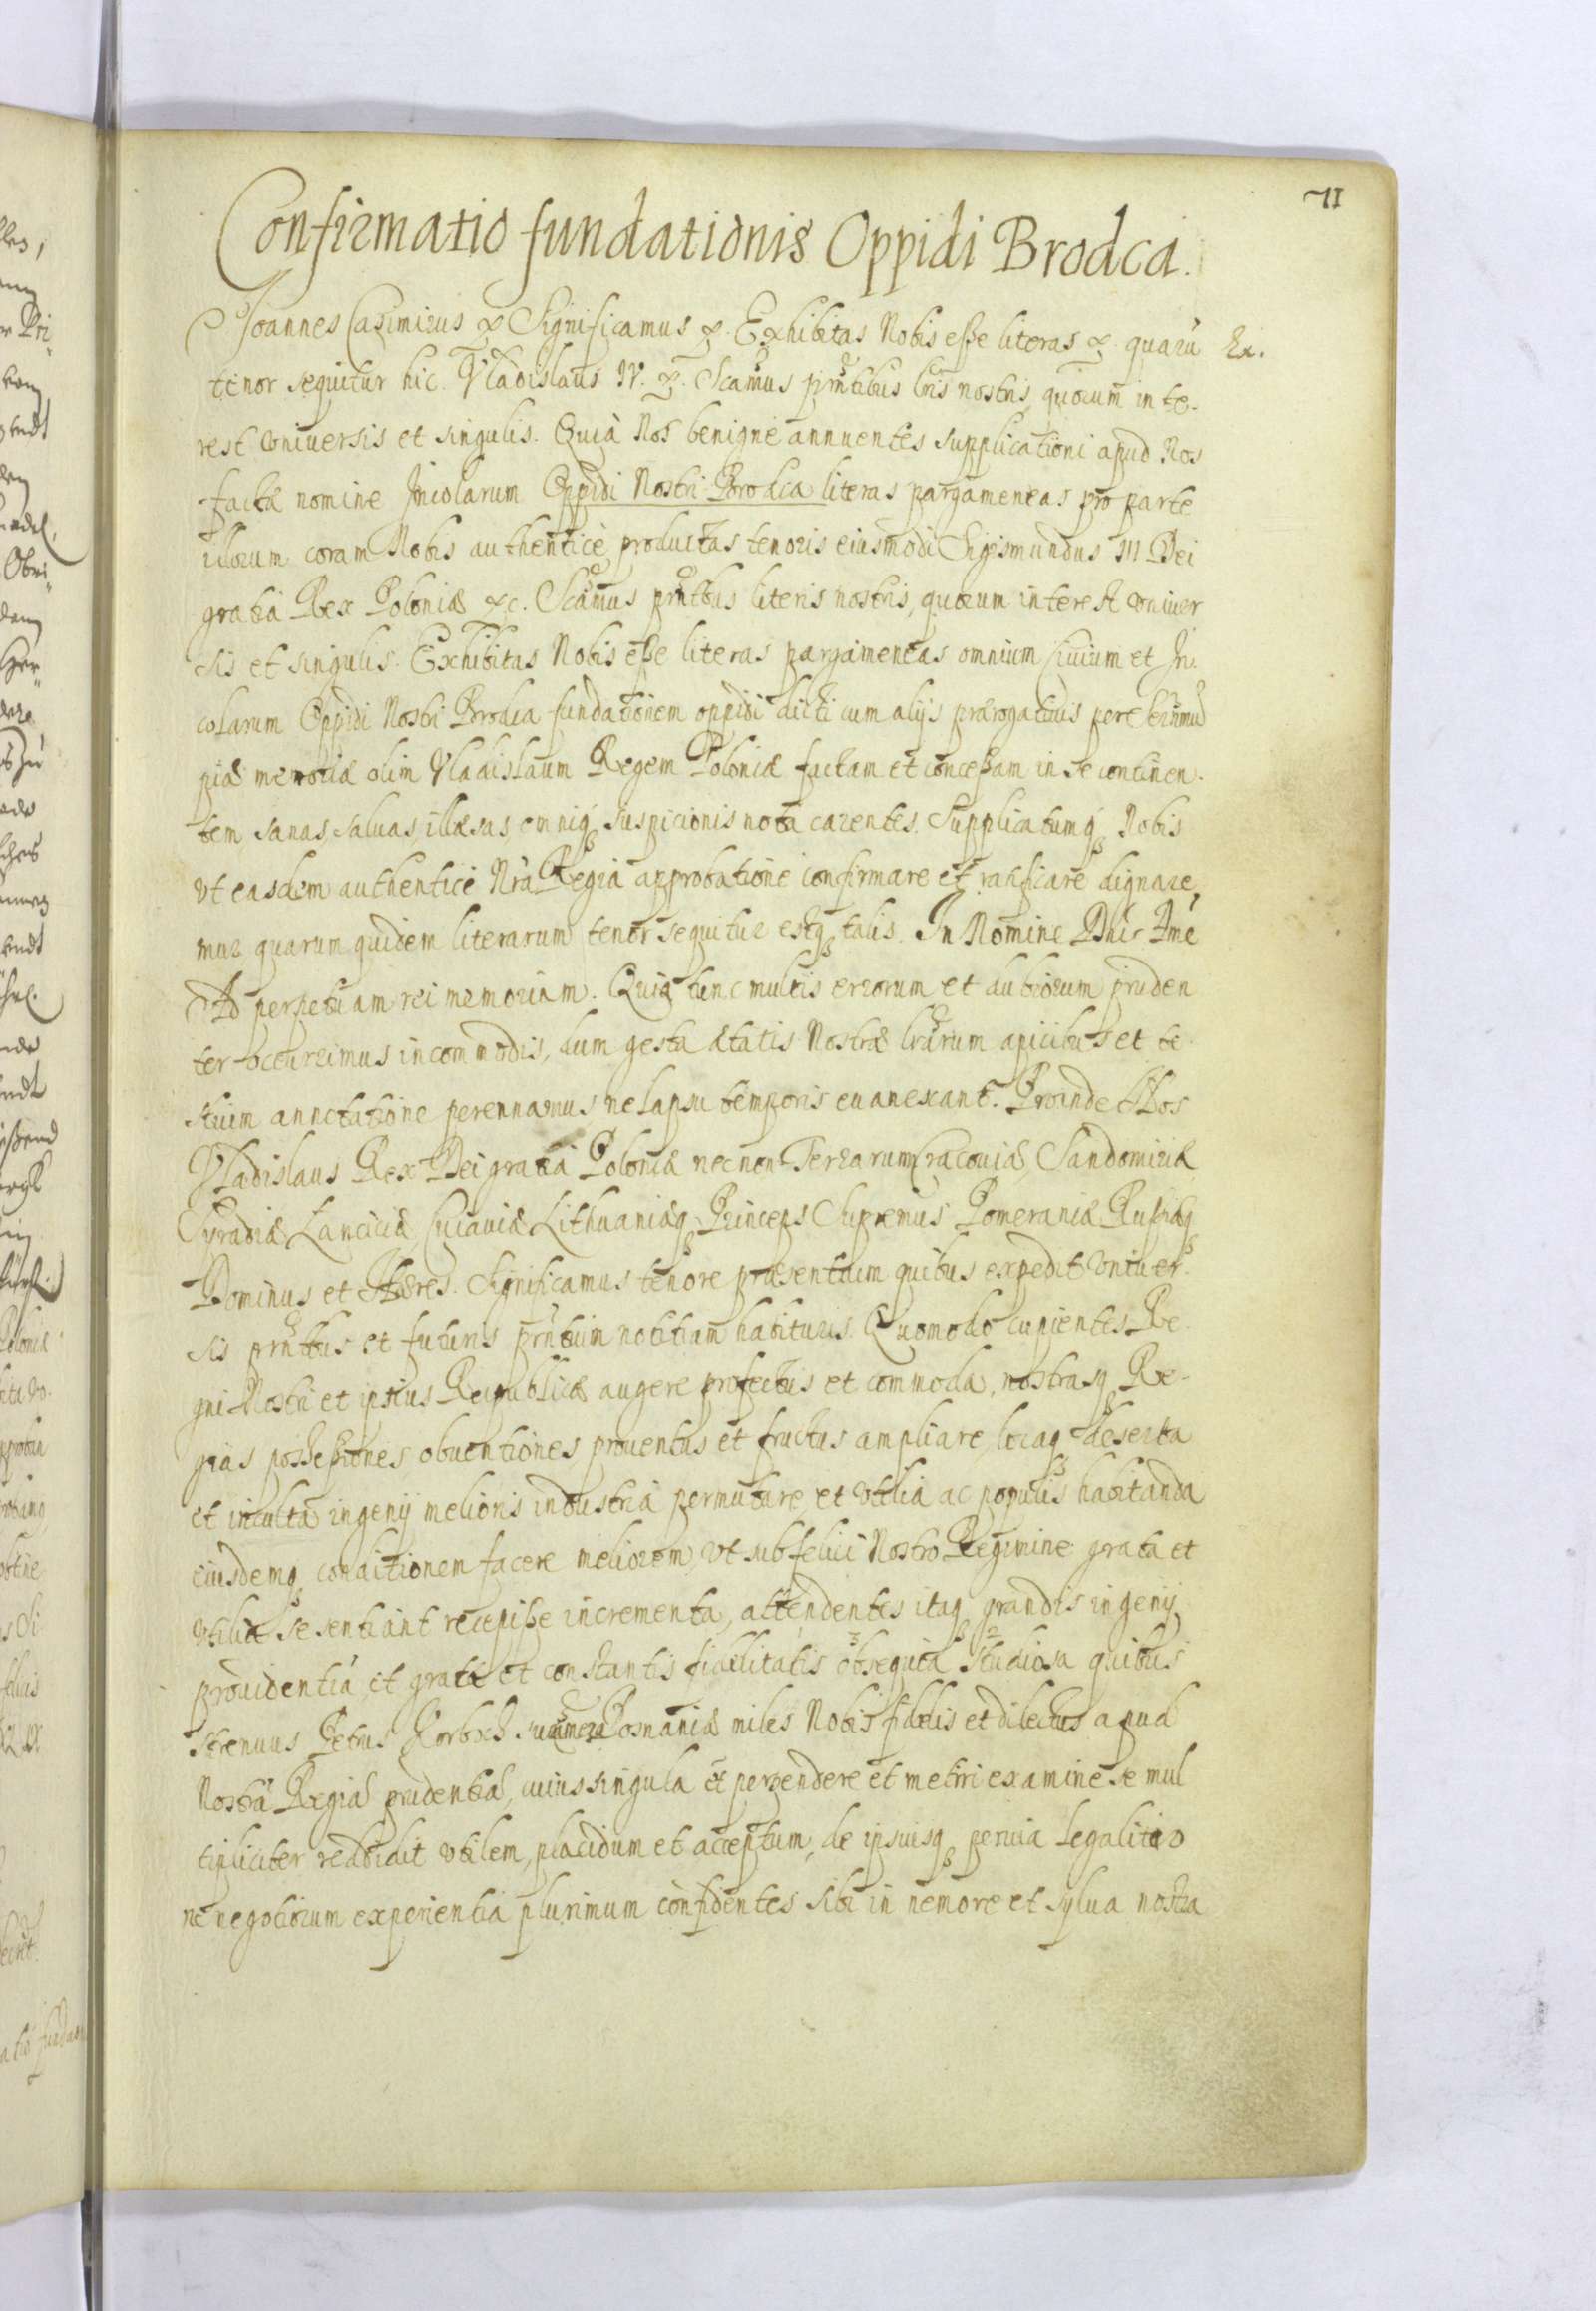 71
Confirmatio fundationis Oppidi Brodca.
Joannes Casimirus &. Significamus &. Exhibitas Nobis esse literas &. quarū Ex.
tenor sequitur hic. Vladislaus IV. &. Scamus pńtibus lris nostris, quorum inte-
rest vniuersis et singulis. Quia Nos benigne annuentes supplicationi apud Nos
factæ nomine Incolarum Oppidi Nostri Brodca literas pargameneas pro parte
illorum coram Nobis authenticè productas tenoris eiusmodi Sigismundus III Dei
gratia Rex Poloniæ &c. Scamus pńtbus literis nostris, quorum interest vniuer
sis et singulis. Exhibitas Nobis esse literas pargameneas omnium Ciuium et In-
colarum Oppidi Nostri Brodca fundationem oppidi dicti cum alijs prærogatiuis per
piæ memoriæ olim Vladislaum Regem Poloniæ factam et concessam in se continen-
tem, sanas, saluas, illæsas, omniq suspicionis nota carentes. Supplicatumq Nobis
vt easdem authentice Nrā Regia approbatione confirmare et ratificare dignare,
mur quarum quidem literarum tenor sequitur estq talis. In Nomine Dńi Amē
Ad perpetuam rei memoriam. Quia tunc multis errorum et dubiorum pruden
ter occurrimus incommodis, dum gesta ætatis Nostræ lrarum apicibus et te-
stium annotatione perennamus ne lapsu temporis euanescant. Proinde Nos
Vladislaus Rex Dei gratia Poloniæ necnon Terrarum Cracouiæ, Sandomiriæ
Syradiæ Lanciciæ Cuiauiæ Lithuaniæq Princeps Supremus Pomeraniæ Russiæq
Dominus et Hæres. Significamus tenore præsentium quibus expedit vniuer-
sis pńtbus et futuris pńtium notitiam habituris. Quomodo cupientes Re-
gni Nostri et ipsius Reipublicæ augere profectus et commoda, nostrasq Re-
gias possessiones obuentiones prouentus et fructus ampliare, locaq deserta
et inculta ingenij melioris industria permutare, et vtilia ac populis habitanda
eiusdemq conditionem facere meliorem, vt sub felici Nostro Regimine grata et
vtilia se sentiant recepisse incrementa, attendentes itaq grandis ingenij
prouidentia, et gratæ et constantis fidelitatis obsequia studiosa quibus
strenuus Petrus Posnaniæ miles Nobis fidelis et dilectus apud
Nostra Regia prudentia, cuius singula et perpendere et metiri examine se mul
tipliciter reddidit vtilem, placidum et acceptum, de ipsuisq peruia legalitao
ne negotiorum experientia plurimum confidentes sibi in nemore et sylua nostra